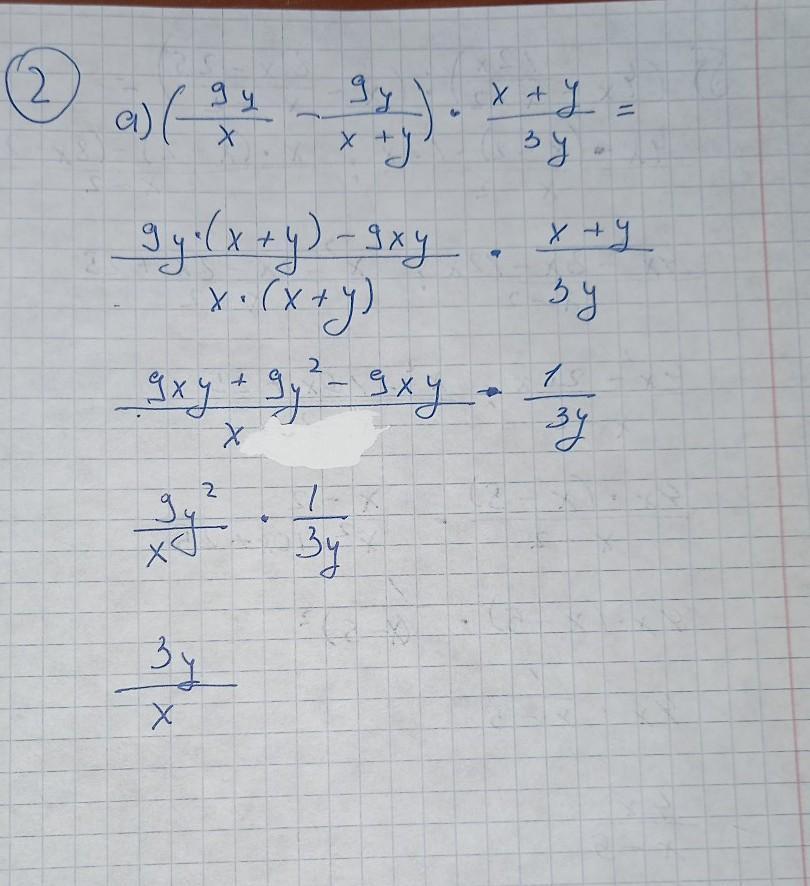 2
a) (9y/x - 9y/(x+y)) · (x+y)/3y =
(9y·(x+y) - 9xy)/(x·(x+y)) · (x+y)/3y
(9xy + 9y² - 9xy)/x · 1/3y
9y²/x · 1/3y
3y/x